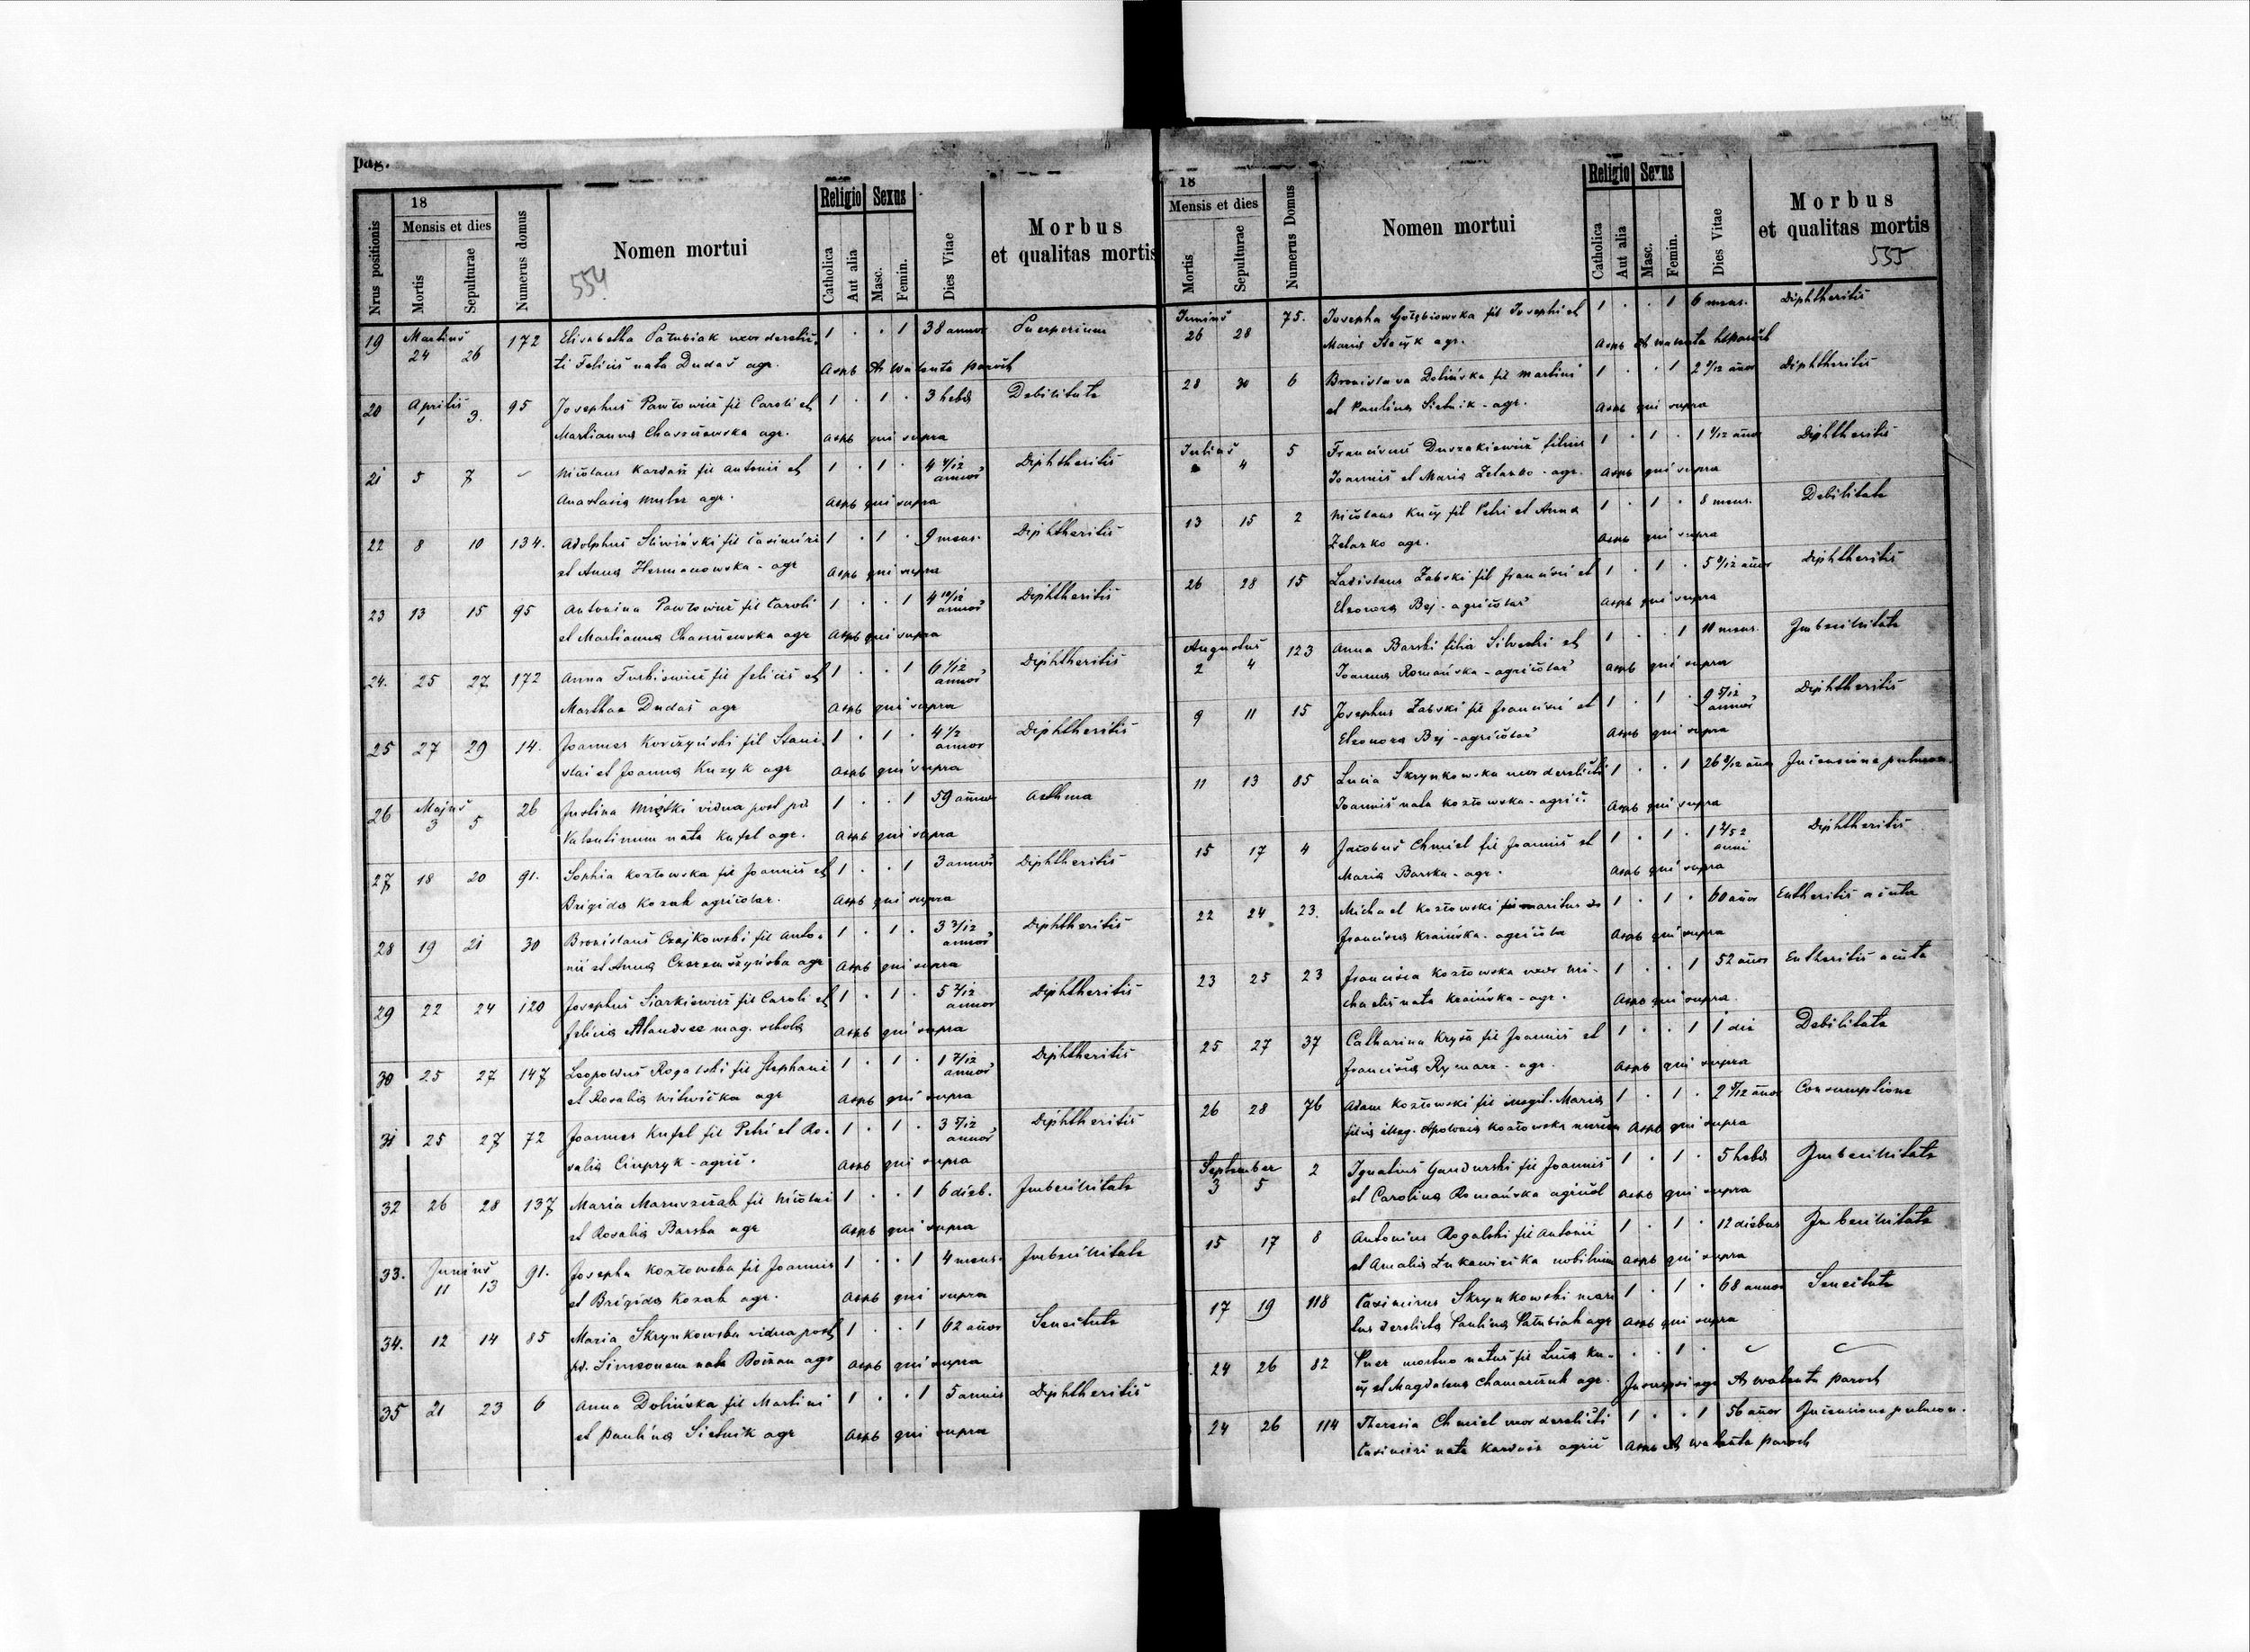 pag.
Nrus positionis
18
Mensis et dies
Mortis
Sepulturae
Numerus domus
Nomen mortui
554
Religio
Sexus
Catholica
Aut alia
Masc.
Femin.
Dies Vitae
Morbus
et qualitas mortis
19 Martius 24 26 172 Elisabetha Patubiak uxor derelic- 1 . . 1 38 annor Puerperium
ti Felicis nata Dudas agr. Asps A Walenta paroch
20 Aprilis 1 3. 95 Josephus Pawłowicz fil Caroli et 1 . 1 . 3 hebd Debilitate
Marianna agr. Asps qui supra
21 5 7 Nicolaus Kardasz fil Antonii et 1 . 1 . 4 annor Diphtheritis
Anastasia agr. Asps qui supra
22 8 10 134. Adolphus Sliwiński fil Casimiri 1 . 1 . 9 mens. Diphtheritis
et Anna Hermanowska - agr Asps qui supra
23 13 15 95 Antonina Pawłowicz fil Caroli 1 . . 1 4 10/12 annor Diphtheritis
et Marianna agr Asps qui supra
24. 25 27 172 Anna fil Felicis et 1 . . 1 6 annor Diphtheritis
Marthae Dudas agr Asps qui supra
25 27 29 14. Joannes Korczyński fil Stani- 1 . 1 . 4 1/2 annor Diphtheritis
slai et Joanna Kuzyk agr Asps qui supra
26 Majus 3 5 26 Justina vidua post pd 1 . . 1 59 annor Asthma
Valentinum nata Kufel agr. Asps qui supra
27 18 20 91. Sophia Kozłowska fil Joannis et 1 . . 1 3 annor Diphtheritis
Brigida Kozak agricolar. Asps qui supra
28 19 21 30 Bronislaus Czajkowski fil Anto- 1 . 1 . 3 annor Diphtheritis
nii et Anna Czeremszyńska agr Asps qui supra
29 22 24 120 Josephus Siarkiewicz fil Caroli et 1 . 1 . 5 annor Diphtheritis
Felicia mag. schola Asps qui supra
30 25 27 147 Leopoldus Rogalski fil Stephani 1 . 1 . 1 7/12 annor Diphtheritis
et Rosalia Witwicka agr Asps qui supra
31 25 27 72 Joannes Kufel fil Petri et Ro- 1 . 1 . 3 annor Diphtheritis
salia Ciupryk - agric. Asps qui supra
32 26 28 137 Maria Maruszczak fil Nicolai 1 . . 1 6 dieb. Imbecilitate
et Rosalia Barska agr Asps qui supra
33. Junius 11 13 91. Josepha Kozłowska fil Joannis 1 . . 1 4 mens. Imbecilitate
et Brigida Kozak agr. Asps qui supra
34. 12 14 85 Maria Skrynkowska vidua post 1 . . 1 62 annor Senectute
pd. Simeonem nata agr Asps qui supra
35 21 23 6 Anna Dolińska fil Martini 1 . . 1 5 annis Diphtheritis
et Paulina Sietnik agr Asps qui supra
18
Mensis et dies
Mortis
Sepulturae
Numerus Domus
Nomen mortui
Religio
Sexus
Catholica
Aut alia
Masc.
Femin.
Dies Vitae
Morbus
et qualitas mortis
555
Junius 26 28 75. Josepha Gołębiowska fil Josephi et 1 . . 1 6 mens. Diphtheritis
Maria agr. Asps A Walenta paroch
28 30 6 Bronislava Dolińska fil Martini 1 . . 1 2 annor Diphtheritis
et Paulina Sietnik - agr. Asps qui supra
Julius 4 5 Franciscus Duszakiewicz filius 1 . 1 . 1 annor Diphtheritis
Joannis et Maria Zelazko - agr. Asps qui supra
13 15 2 Nicolaus Kucy fil Petri et Anna 1 . 1 . 8 mens. Debilitate
Zelazko agr. Asps qui supra
26 28 15 Ladislaus Zabski fil Francisci et 1 . 1 . 5 annor Diphtheritis
Eleonora Bej - agricolar Asps qui supra
Augustus 2 4 123 Anna Barski filia Silvestri et 1 . . 1 11 mens. Imbecilitate
Joanna Romańska - agricolar Asps qui supra
9 11 15 Josephus Zabski fil Francisci et 1 . 1 . 9 annor Diphtheritis
Eleonora Bej - agricolar Asps qui supra
11 13 85 Lucia Skrynkowska uxor derelicti 1 . . 1 26 annor Incensione pulmon.
Joannis nata Kozłowska - agric. Asps qui supra
15 17 4 Jacobus Chmiel fil Joannis et 1 . 1 . 1 2/52 anni Diphtheritis
Maria Barska - agr. Asps qui supra
22 24 23. Michael Kozłowski maritus 1 . 1 . 60 annor Entheritis acuta
Francisca Kraińska - agricola Asps qui supra
23 25 23 Francisca Kozłowska uxor Mi- 1 . . 1 52 annor Entheritis acuta
chaelis nata Kraińska - agr. Asps qui supra
25 27 37 Catharina Krysa fil Joannis et 1 . . 1 1 die Debilitate
Francisca Rymarz - agr. Asps qui supra
26 28 76 Adam Kozłowski fil illegit. Maria 1 . 1 . 2 annor Consumptione
filia illeg. Apolonia Kozłowska Asps qui supra
September 3 5 2 Ignatius Gandurski fil Joannis 1 . 1 . 5 hebd Imbecilitate
et Carolina Romańska agricol Asps qui supra
15 17 8 Antonius Rogalski fil Antonii 1 . 1 . 12 diebus Imbecilitate
et Amalia Łukawiecka nobilium Asps qui supra
17 19 118 Casimirus Skrynkowski mari 1 . 1 . 68 annor Senectute
tus derelicta Paulina Patubiak agr Asps qui supra
24 26 82 Puer mortuo natus fil Luca Ku- . . 1 .
cy et Magdalena agr. A Walenta paroch
24 26 114 Theresia Chmiel uxor derelicti 1 . . 1 56 annor Incensione pulmon.
Casimiri nata Kardasz agric Asps A Walenta paroch